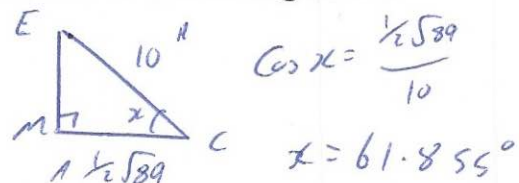 E
10 H
M x C
A ½√89
Cos x = ½√89 / 10
x = 61.855°